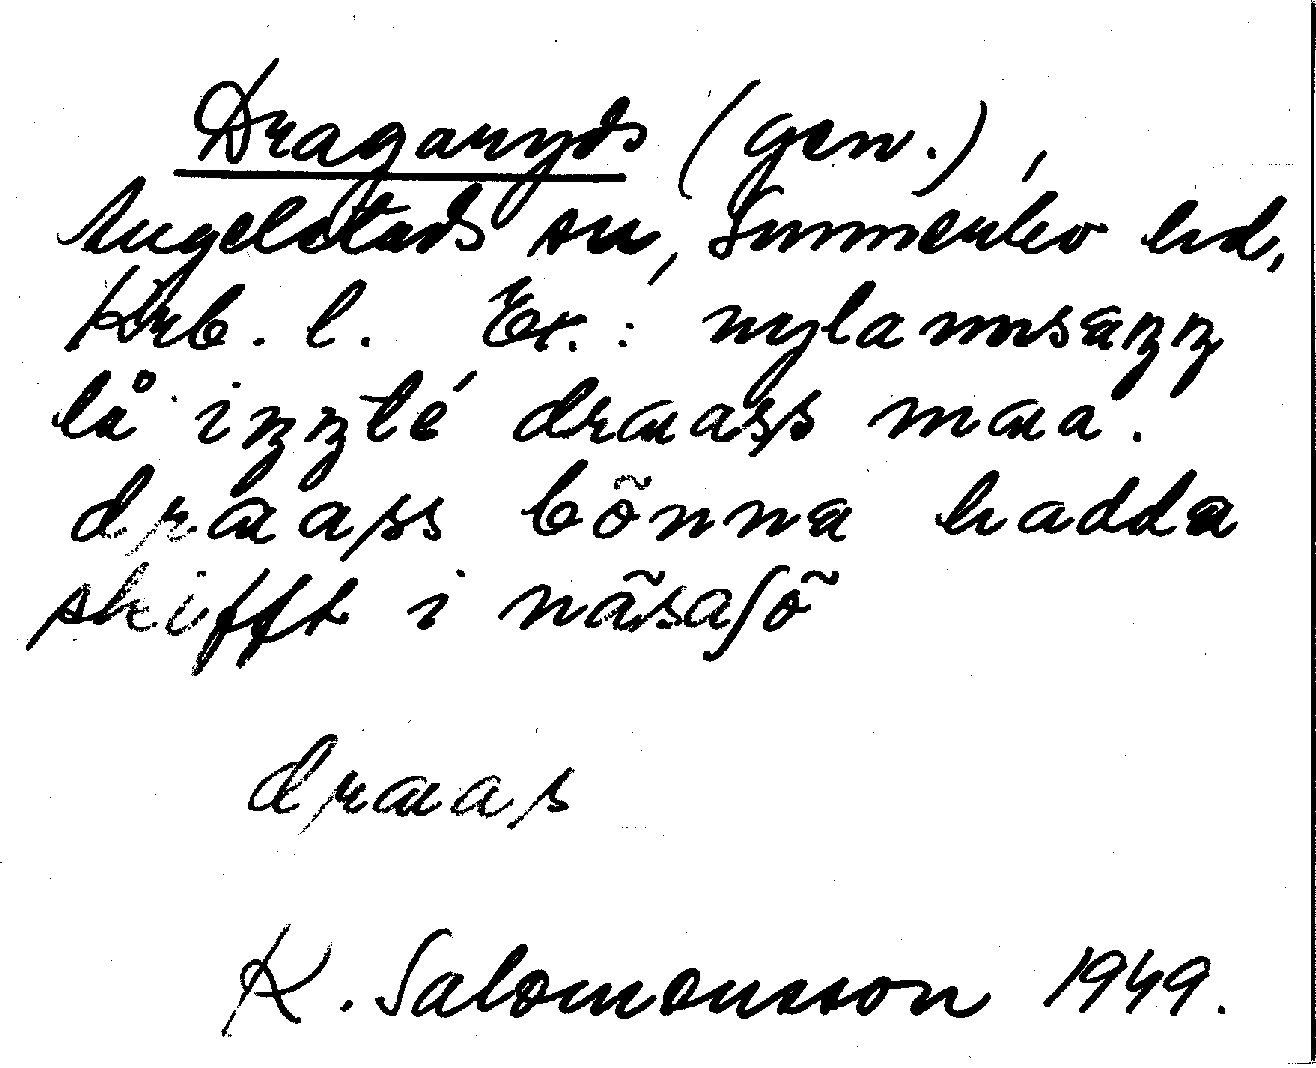 Dragaryds (gen.),
Angelstads sn, Sunnerbo hd,
Krb. l. Ex.: nylannsazz
lå izzté draass maa.
draass bõnna hadda
skifft i nãsaſõ
draas
K. Salomonsson 1949.